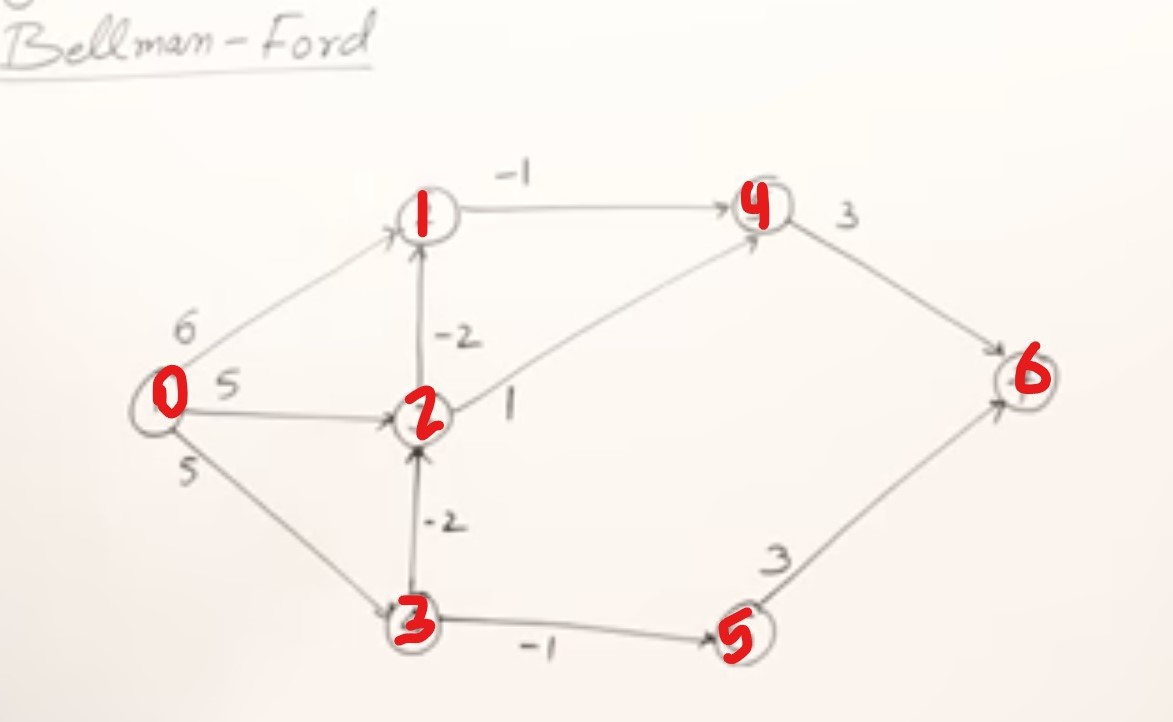 Bellman-Ford
-1
1
4
3
6
-2
0
5
2
1
6
5
-2
3
3
5
-1